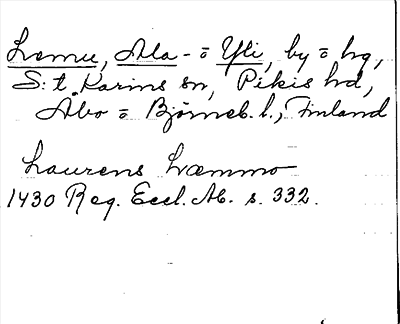 Lemu, Ala- o Yli, by o hg,
S:t Karins sn, Pikis hd,
Åbo o Björneb. l., Finland
Laurens Læmmo
1430 Reg. Eccl. Ab. s. 332.